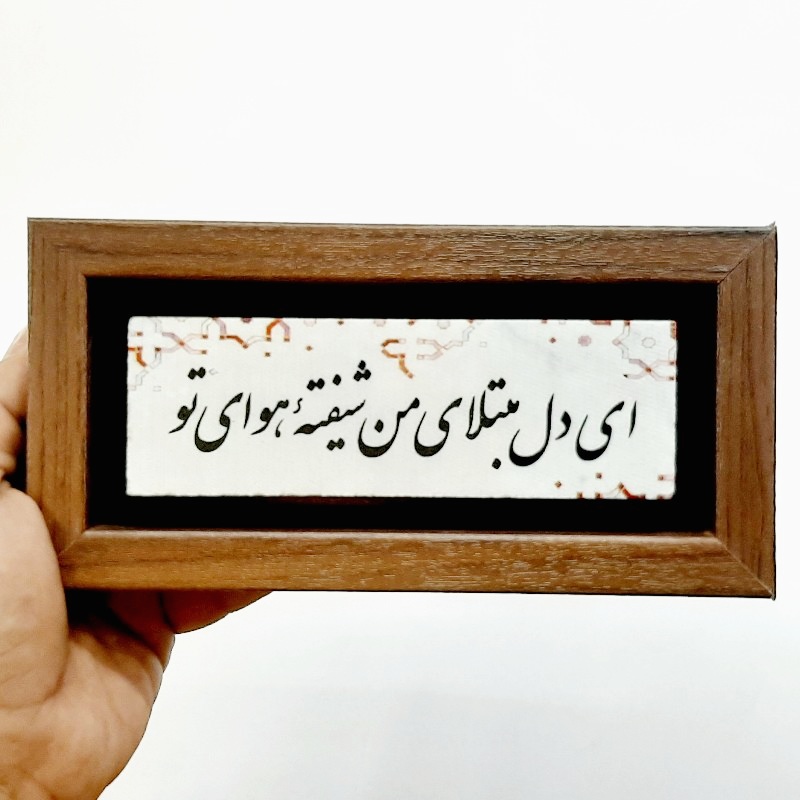 ای دل مبتلای من شیفتهٔ هوای تو